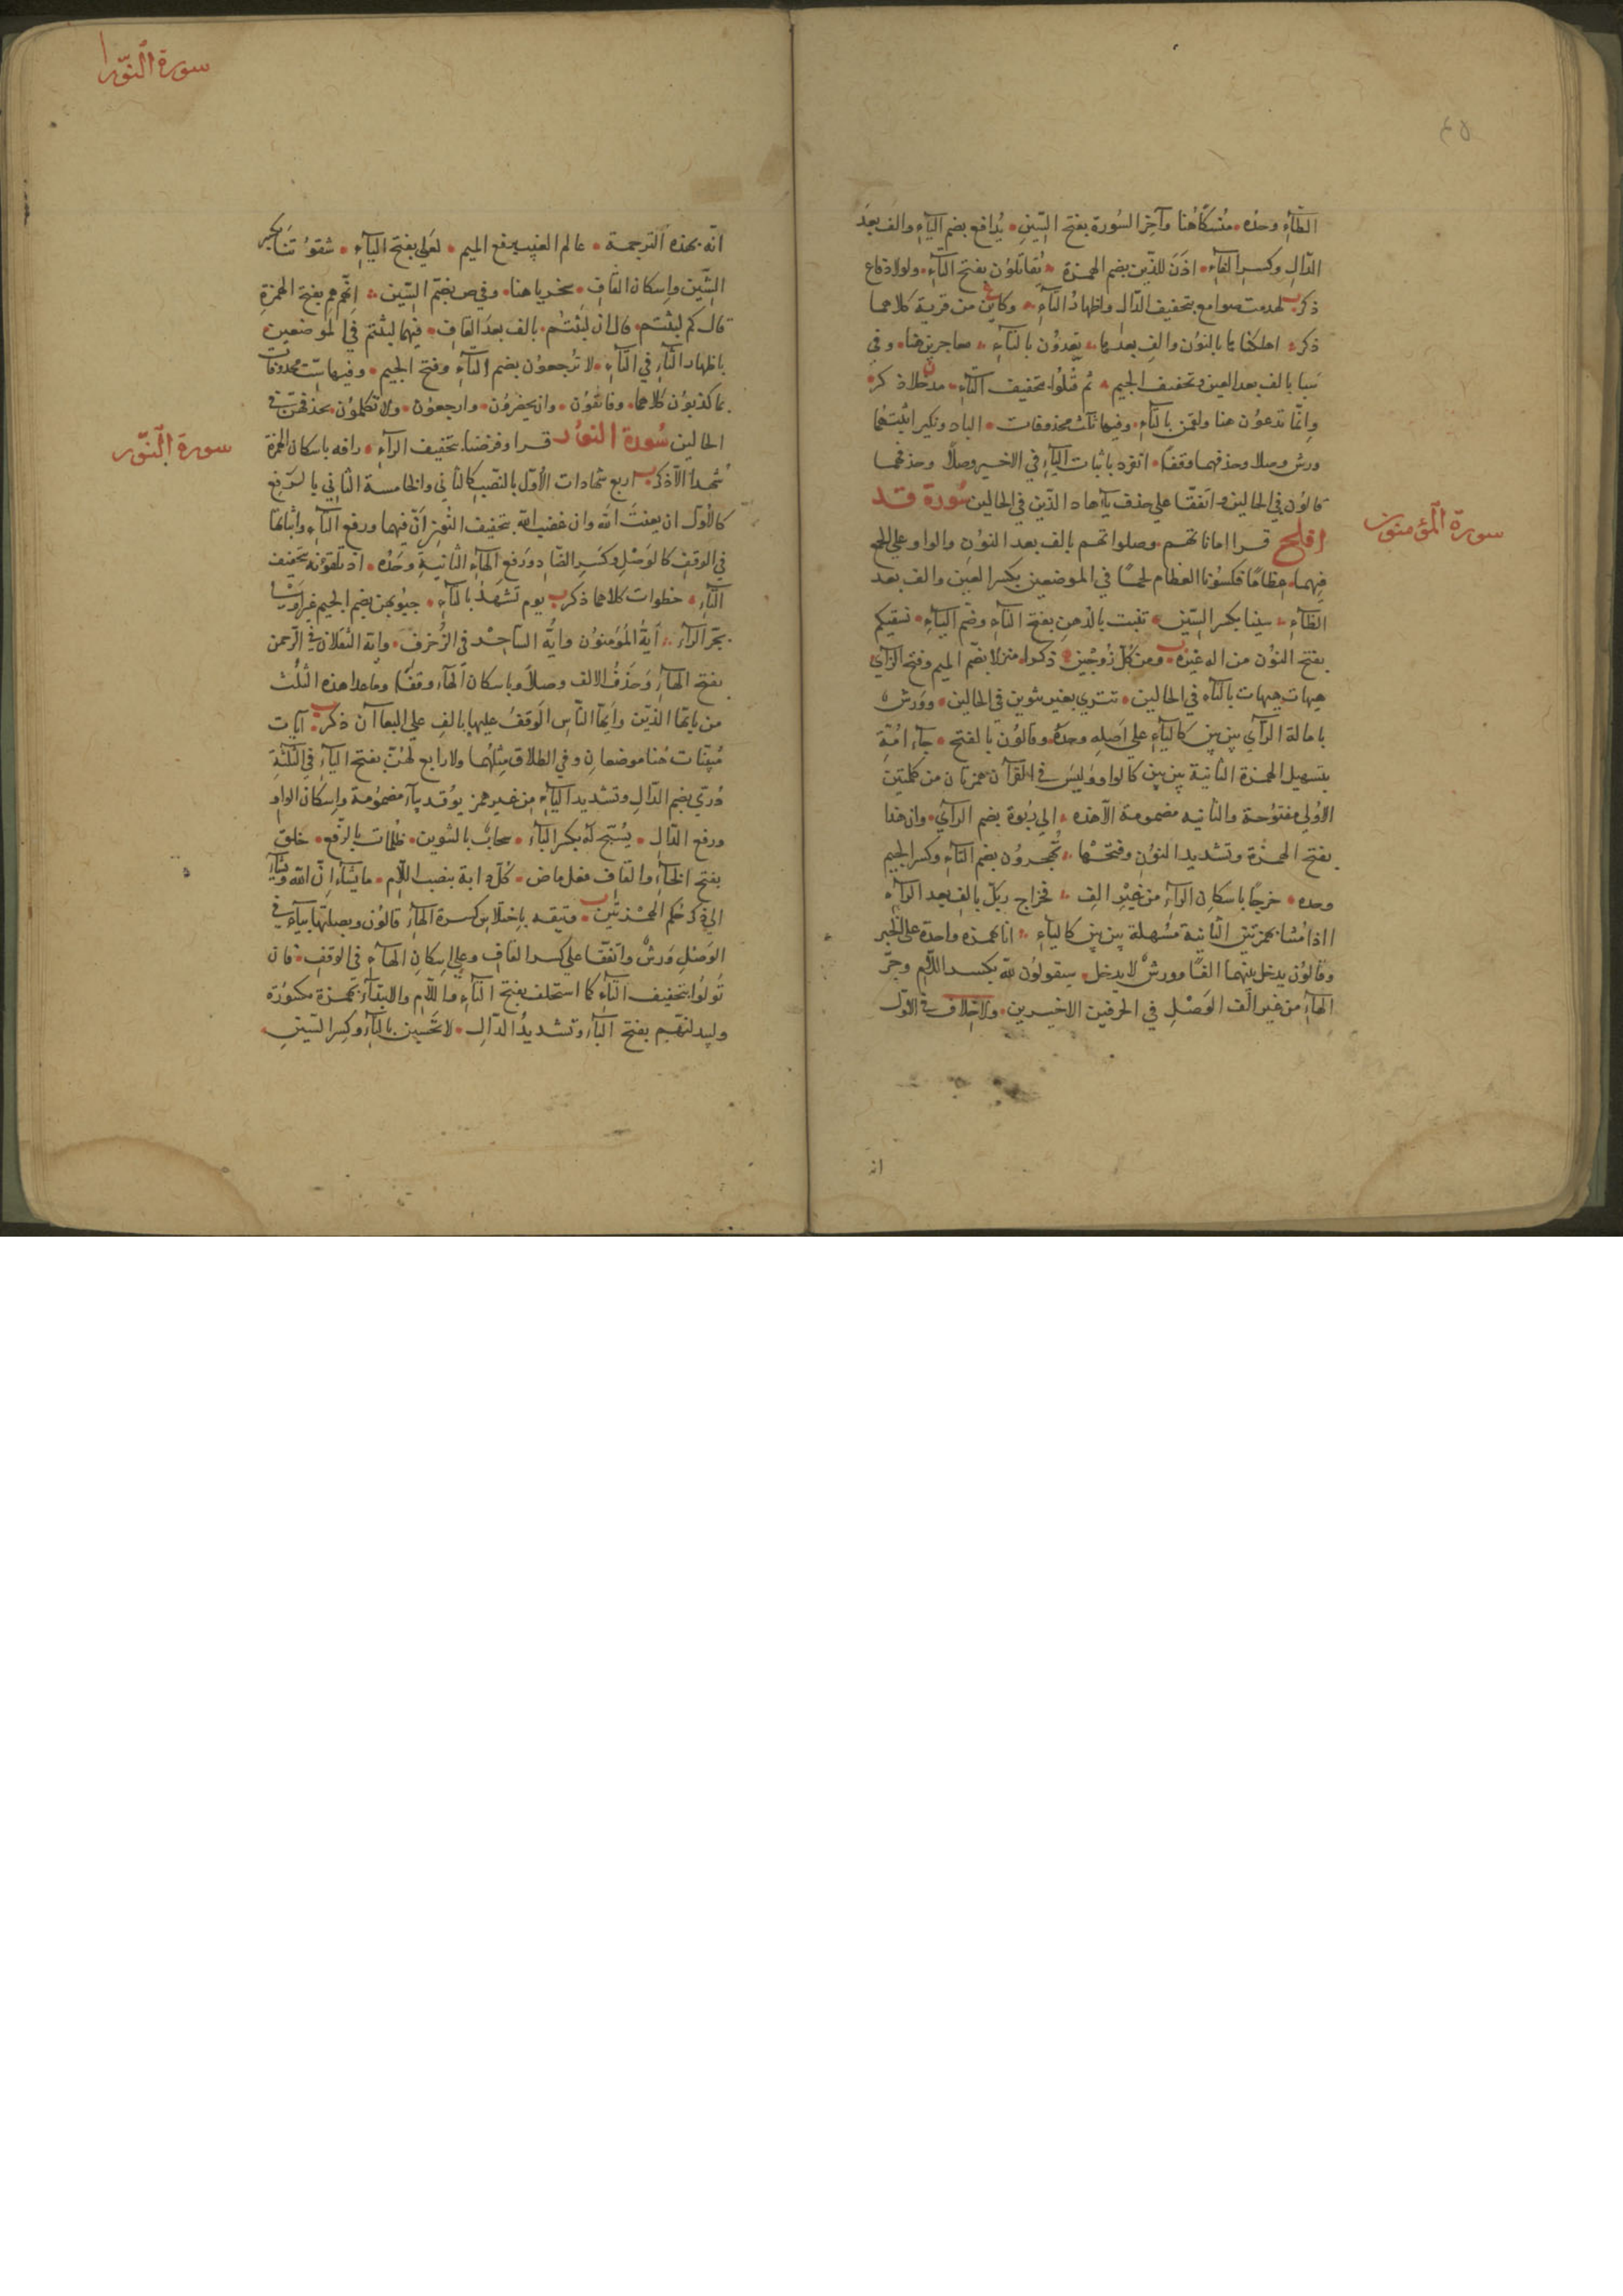 ٤٥
الطآء وحده ۰ منسكًا هنا وآخر السورة بفتح السين ۰ يُدافع بضم اليآء والف بعد
الدال وكسر الفآء ۰ اذن للذين بضم الهمزة ۰ يُقاتلون بفتح التآء ۰ ولولا دفاع
ذكر ۰ لهدمت صوامع بتخفيف الدال واظهار التآء ۰ وكاين من قرية كلاهما
ذكر ۰ اهلكناها بالنون والف بعدها ۰ يعدون بالتآء ۰ معاجزين هنا ۰ وفي
سبا بالف بعد العين وتخفيف الجيم ۰ ثم قُتلوا بتخفيف التآء ۰ مدخلا ذكر ۰
وانما تدعون هنا ولقمن بالتآء ۰ وفيها ثلث محذوفات ۰ الباد ونكير اثبتهما
ورش وصلا وحذفهما وقفا ۰ انفرد باثبات اليآء في الاخير وصلًا وحذفهما
قالون في الحالين ۰ واتفقا على حذف يآء هاد الذين في الحالين سورة قد
سورة المؤمنون
افلح قرا اماناتهم وصلواتهم بالف بعد النون والواو على الجمع
فيهما ۰ عظامًا فكسونا العظام لحمًا في الموضعين بكسر العين والف بعد
الظآء ۰ سينا بكسر السين ۰ تنبت بالدهن بفتح التآء وضم البآء ۰ نسقيكم
بفتح النون من اله غيره ۰ ومن كل زوجين ۰ ذكرا ۰ منزلا بضم الميم وفتح الزآي
هيهات هيهات بالتآء في الحالين ۰ تترى بغير تنوين في الحالين ۰ وورش
بامالة الرآي بين بين كاليآء على اصله وحده ۰ وقالون بالفتح ۰ جآء امّة
بتسهيل الهمزة الثانية بين بين كالواو وليس في القرآن همزتان من كلمتين
الاولى مفتوحة والثانيه مضمومة الا هذه ۰ الى ربوة بضم الرآي ۰ وان هذا
بفتح الهمزة وتشديد النون وفتحها ۰ تُهجرون بضم التآء وكسر الجيم
وحده ۰ خرجًا باسكان الرآء من غير الف ۰ فخراج ربك بالف بعد الرآء
ااذا متنا بهمزتين الثانية مسهلة بين بين كاليآء ۰ انا بهمزه واحدة على الخبر
وقالون يدخل بينهما الفًا وورش لا يدخل ۰ سيقولون لله بكسر اللام وجر
الهآء من غير الف الوصل في الحرفين الاخيرين ۰ ولا خلاف في الاول
انه
سورة النور
انه بهذه الترجمة ۰ عالم الغيب برفع الميم ۰ لعلي بفتح اليآء ۰ شقوتنا بكسر
الشين واسكان القاف ۰ سخريا هنا ۰ وفي ص بضم السين ۰ انهم هم بفتح الهمزة
قال كم لبثتم ۰ قال ان لبثتم ۰ بالف بعد القاف ۰ فيهما لبثتم في الموضعين
باظهار الثآء في التآء ۰ لا تُرجعون بضم التآء وفتح الجيم ۰ وفيها ست محذوفات
بما كذبون كلاهما ۰ وفاتقون ۰ وان يحضرون ۰ وارجعون ۰ ولا تكلمون ۰ بحذفهن في
الحالين سورة النور قرا وفرضنا بتخفيف الرآء ۰ رافه باسكان الهمزة
سورة النور
شهدآء الا ذكر ۰ اربع شهادات الاول بالنصب كالثاني والخامسة الثاني بالرفع
كالاول ان لعنت الله وان غضب الله بتخفيف النون ان فيهما ورفع التآء واثباتها
في الوقف كالوصل وكسر الضاد ورفع الهآء الثانية وحده ۰ اذ تلقونه بتخفيف
التآء ۰ خطوات كلاهما ذكر ۰ يوم تشهد بالتآء ۰ جيوبهن بضم الجيم غير
بجر الرآء ۰ ايه المؤمنون وايه الساحر في الزخرف ۰ وايه الثقلان في الرحمن
بفتح الهآء وحذف الالف وصلًا وباسكان الهآء وقفًا وما عدا هذه الثلث
من يايها الذين وايها الناس الوقف عليها بالف على ذكر ۰ آيات
مبينات هنا موضعان وفي الطلاق مثلهما ولا رابع لهن بفتح اليآء في الثلثة
دُري بضم الدال وتشديد اليآء من غير همز يوقد بيآء مضمومة واسكان الواو
ورفع الدال ۰ يُسبح له بكسر البآء ۰ سحاب بالتنوين ۰ ظلمات بالرفع ۰ خلق
بفتح الخآء والقاف فعل ماض ۰ كل دابة بنصب اللام ۰ ما يشآء ان الله ويشآء
الى ذكر حكم الهمزتين ۰ ويتقه باختلاس كسرة الهآء قالون ويصلها بيآء في
الوصل ورش واتفقا على كسر القاف وعلى اسكان الهآء في الوقف ۰ فان
تولوا بتخفيف التآء كما استخلف بفتح التآء واللام والابتدآء بهمزة مكسورة
وليبدلنهم بفتح البآء وتشديد الدال ۰ لا تحسبن بالتآء وكسر السين ۰